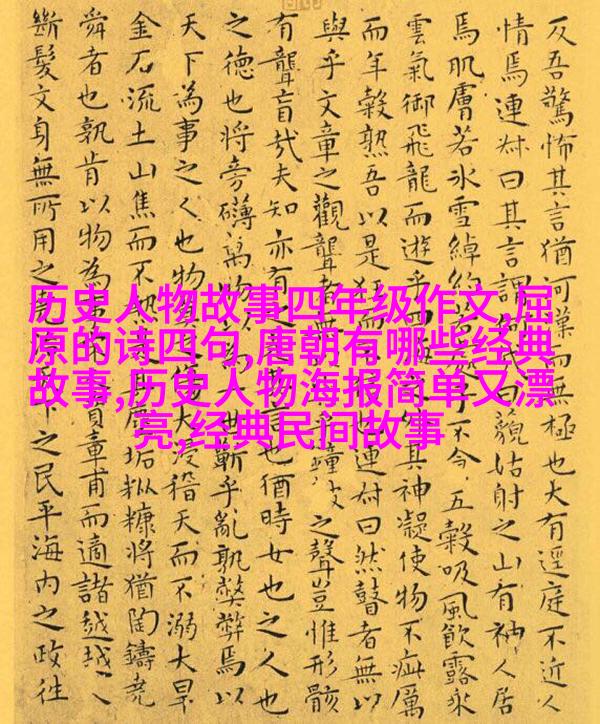 历史人物故事四年级作文,屈
原的诗四句,唐朝有哪些经典
故事,历史人物海报简单又漂
亮,经典民间故事
反吾驚怖其言猶河漢而無極也大有逕庭不近人
情焉連叔曰其言謂何曰藐姑射之山有神人居
焉肌膚若冰雪綽約不食五穀吸風飲露乘
雲氣御飛龍而遊乎四其神凝使物不疵厲
而年穀熟吾以是狂而也連叔曰然瞽者無以
與乎文章之觀聾者無乎鐘之聲豈惟形骸
有聾盲哉夫知亦有之言也猶時女也之人也
之德也將旁礴萬物以世蘄乎亂孰弊弊焉以
天下為事之人也物莫傷大浸稽天而不溺大旱
金石流土山焦而不熱塵垢粃糠將猶陶鑄堯
舜者也孰肯以物為資章甫而適諸越越人
斷髮文身無所用之下之民平海內之政往